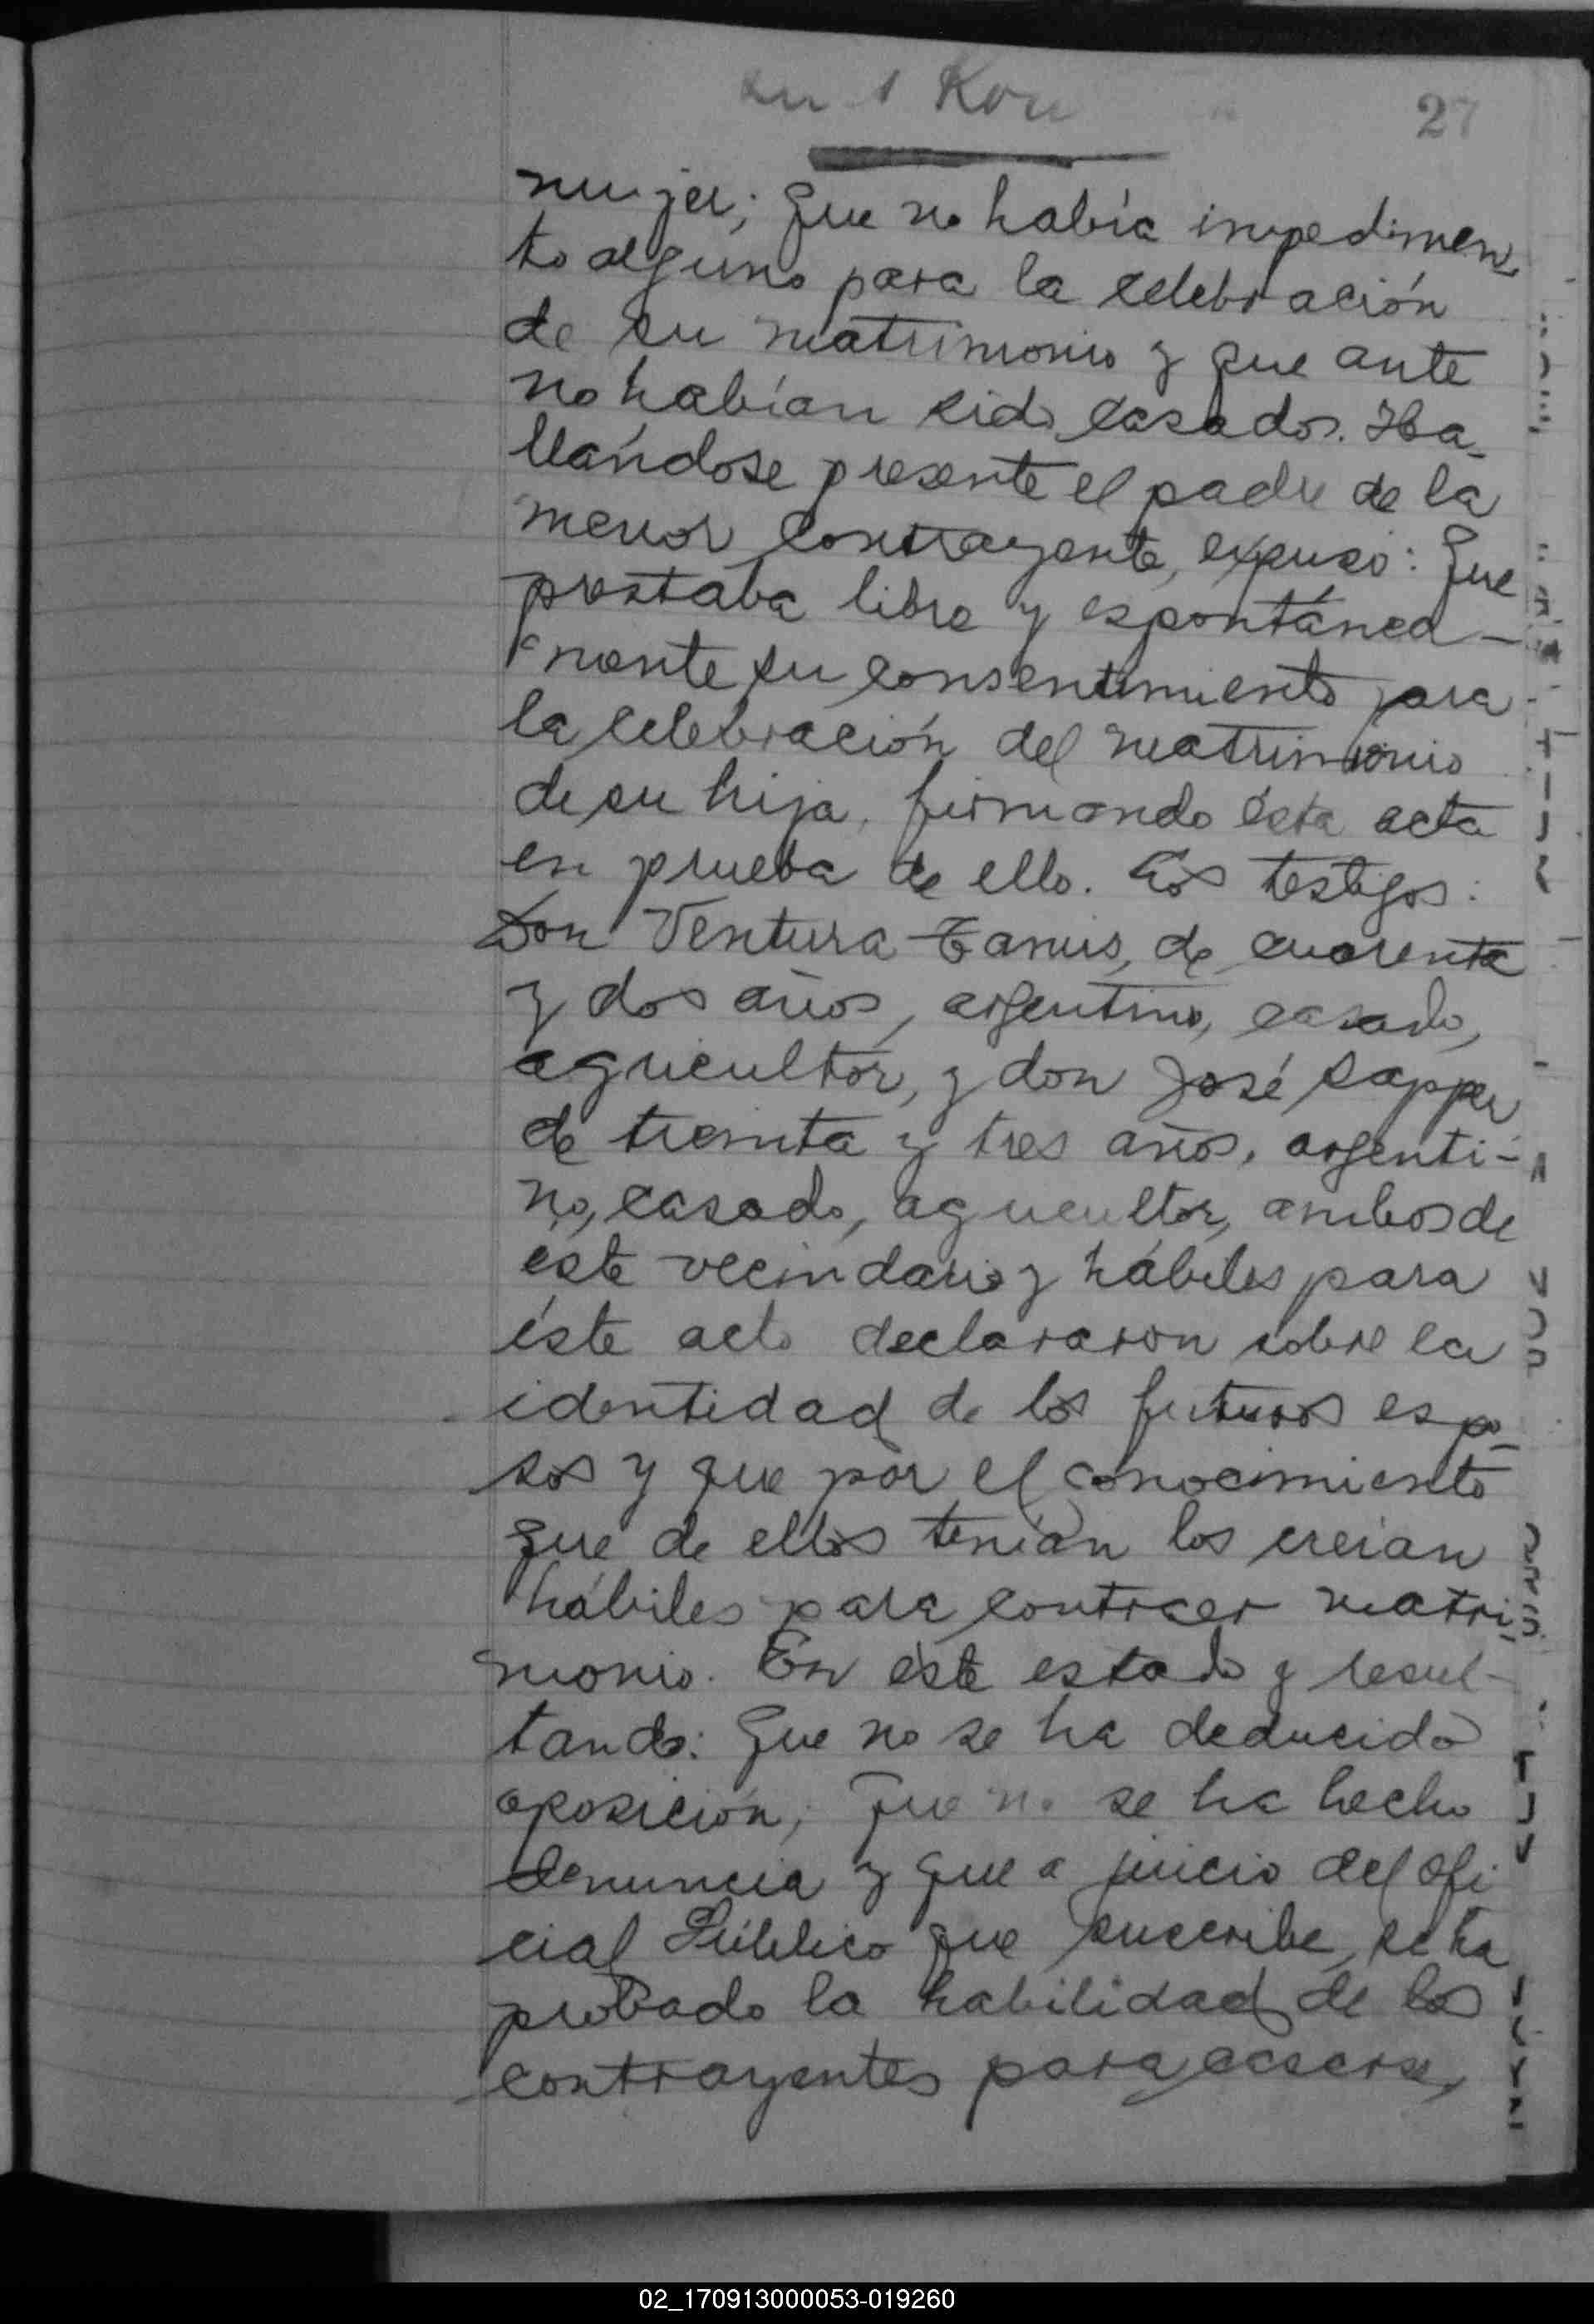 27
mujer; Que no había impedimen-
to alguno para la celebración
de su matrimonio y que ante
no habían sido casados. Ha-
llándose presente el padre de la
menor contrayente, expuso: Que
prestaba libre y espontánea-
mente su consentimiento para
la celebración del matrimonio
de su hija, firmando ésta acta
en prueba de ello. Los testigos:
Don Ventura Tanus, de cuarenta
y dos años, argentino, casado,
agricultor, y don José Sapper
de treinta y tres años, argenti-
no, casado, agricultor, ambos de
éste vecindario y hábiles para
éste acto declararon sobre la
identidad de los futuros espo-
sos y que por el conocimiento
que de ellos tenían los creían
hábiles para contraer matri-
monio. En éste estado y resul-
tando: Que no se ha deducido
oposición; Que no se ha hecho
denuncia y que a juicio del Ofi
cial Público que suscribe, se ha
probado la habilidad de los
contrayentes para casarse,
02_170913000053-019260